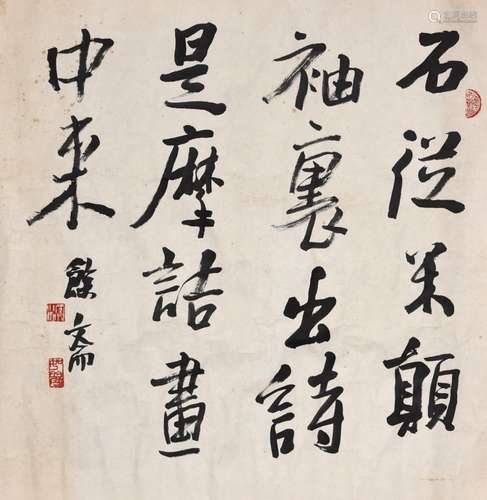 石從米顛
袖裏出詩
是摩詰畫
中來
餘齋